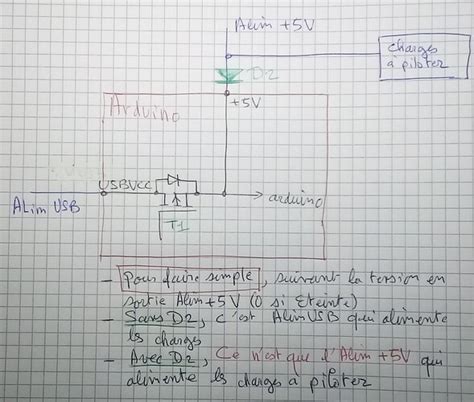 Alim +5V
charges
à piloter
D2
+5V
Arduino
USBVCC
arduino
ALim USB
T1
- Pour faire simple, suivant la tension en
sortie Alim +5V (0 si éteinte)
- Sans D2, c'est Alim USB qui alimente
les charges
- Avec D2, Ce n'est que l'Alim +5V qui
alimente les charges à piloter